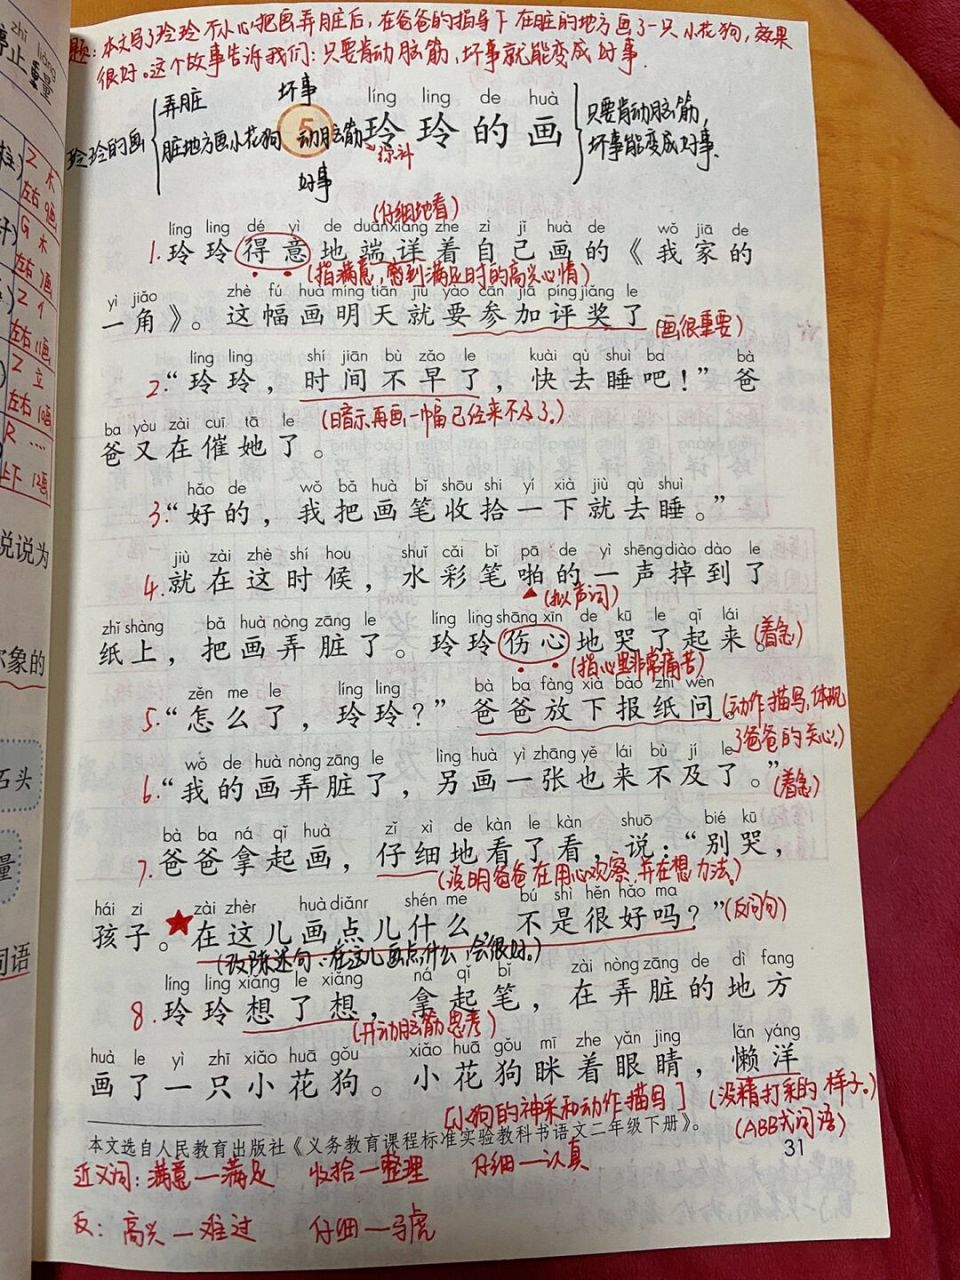 题：本文写了玲玲不小心把画弄脏后，在爸爸的指导下在脏的地方画了一只小花狗，效果
很好。这个故事告诉我们：只要肯动脑筋，坏事就能变成好事.
玲玲的画
弄脏 坏事
脏地方画小花狗 动脑筋
好事
5
líng líng de huà
玲玲的画
综补
只要肯动脑筋，
坏事能变成好事.
(仔细地看)
líng líng dé yì de duān xiáng zhe zì jǐ huà de wǒ jiā de
1. 玲玲得意地端详着自己画的《我家的
(指满意，感到满足时的高兴心情)
yì jiǎo zhè fú huà míng tiān jiù yào cān jiā píng jiǎng le
一角》。这幅画明天就要参加评奖了
(画很重要)
líng ling shí jiān bù zǎo le kuài qù shuì ba bà
2. “玲玲，时间不早了，快去睡吧！”爸
(暗示再画一幅已经来不及了.)
ba yòu zài cuī tā le
爸又在催她了。
hǎo de wǒ bǎ huà bǐ shōu shi yí xià jiù qù shuì
3. “好的，我把画笔收拾一下就去睡。”
jiù zài zhè shí hou shuǐ cǎi bǐ pā de yì shēng diào dào le
4. 就在这时候，水彩笔啪的一声掉到了
(拟声词)
zhǐ shàng bǎ huà nòng zāng le líng ling shāng xīn de kū le qǐ lái
纸上，把画弄脏了。玲玲伤心地哭了起来。
(着急)
(指心里非常痛苦)
zěn me le líng ling bà ba fàng xià bào zhǐ wèn
5. “怎么了，玲玲？”爸爸放下报纸问
(动作描写，体现
了爸爸的关心.)
wǒ de huà nòng zāng le lìng huà yì zhāng yě lái bù jí le
6. “我的画弄脏了，另画一张也来不及了。”
(着急)
bà ba ná qǐ huà zǐ xì de kàn le kàn shuō bié kū
7. 爸爸拿起画，仔细地看了看，说：“别哭，
(说明爸爸在用心观察，并在想办法.)
hái zi zài zhèr huà diǎnr shén me bú shì hěn hǎo ma
孩子。在这儿画点儿什么，不是很好吗？”
(反问句)
(改陈述句：在这儿画点什么，会很好.)
líng líng xiǎng le xiǎng ná qǐ bǐ zài nòng zāng de dì fang
8. 玲玲想了想，拿起笔，在弄脏的地方
(开动脑筋思考)
huà le yì zhī xiǎo huā gǒu xiǎo huā gǒu mī zhe yǎn jing lǎn yáng
画了一只小花狗。小花狗眯着眼睛，懒洋
[小狗的神采和动作描写]
(没精打采的样子.)
(ABB式词语)
本文选自人民教育出版社《义务教育课程标准实验教科书语文二年级下册》。
31
近义词：满意—满足 收拾—整理 仔细—认真
反：高兴—难过 仔细—马虎
zhǐ liàng
停止 重量
木
左右 9画
G 木
左右
Z 亻
左右 11画
Z 立
左右
R ……
上下 12画
说说为
象的
石头
量
词语